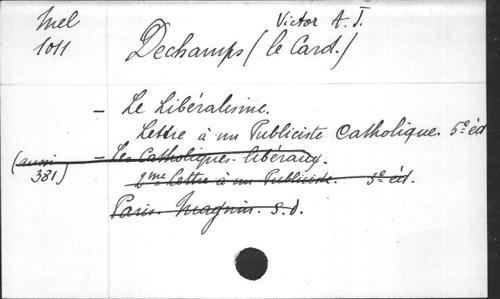 Mel
1011
Victor A. J.
Dechamps (le Card.)
— Le Libéralisme.
Lettre à un Publiciste Catholique. 5e éd
(aussi 381)
— Les Catholiques-libéraux.
2me Lettre à un Publiciste. 5e éd.
Paris. Magnin. s.d.